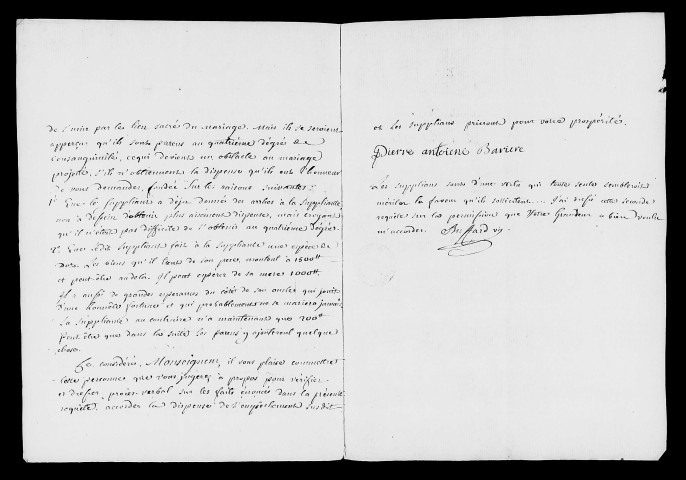 de s'unir par les lien sacrés du Mariage. Mais ils se seroient
apperçus qu'ils sont parens au quatrième dégrés de
Consanguinité, ce qui devient un obstacle au mariage
projetté, s'ils n'obtiennent la dispense qu'ils ont l'honneur
de vous demander, fondée sur les raisons suivantes:
1° Que le suppliant a deja donné des arrhes à la suppliante,
non à dessein d'obtenir plus aisement dispense, mais croyant
qu'il n'étoit pas difficile de l'obtenir au quatrième dégré.
2° Que ledit suppliant fait à la suppliante une espèce de
Dot. Les biens qu'il tient de son pere, montent à 1500tt
et peut-être audela. Il peut esperer de sa mere 1000tt.
Il a aussi de grandes esperances du côté de son oncle qui jouit
d'une honnête fortune et qui probablement ne se mariera jamais.
La suppliante au contraire n'a maintenant que 200tt
Peut être que dans la suite les parens y ajouteront quelque
chose.
Ce considéré, Monseigneur, il vous plaise commettre
telle personne que vous jugerez à propos pour vérifier
et dresser procès-verbal sur les faits énoncés dans la présente
requête, accorder la dispense de l'empêchement susdit
et les supplians prieront pour votre prospérité.
Pierre antoiene Bariere
Les supplians sont d'une vertu qui toute seule sembleroit
mériter la faveur qu'ils sollicitent... J'ai dressé cette
requête sur la permission que Votre Grandeur a bien voulu
m'accorder.